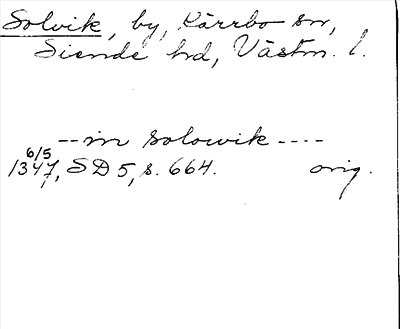 Solvik, by, Kärrbo sn,
Siende hd, Västm. l.
--in solowik----
6/5
1347, SD 5, s. 664. orig.